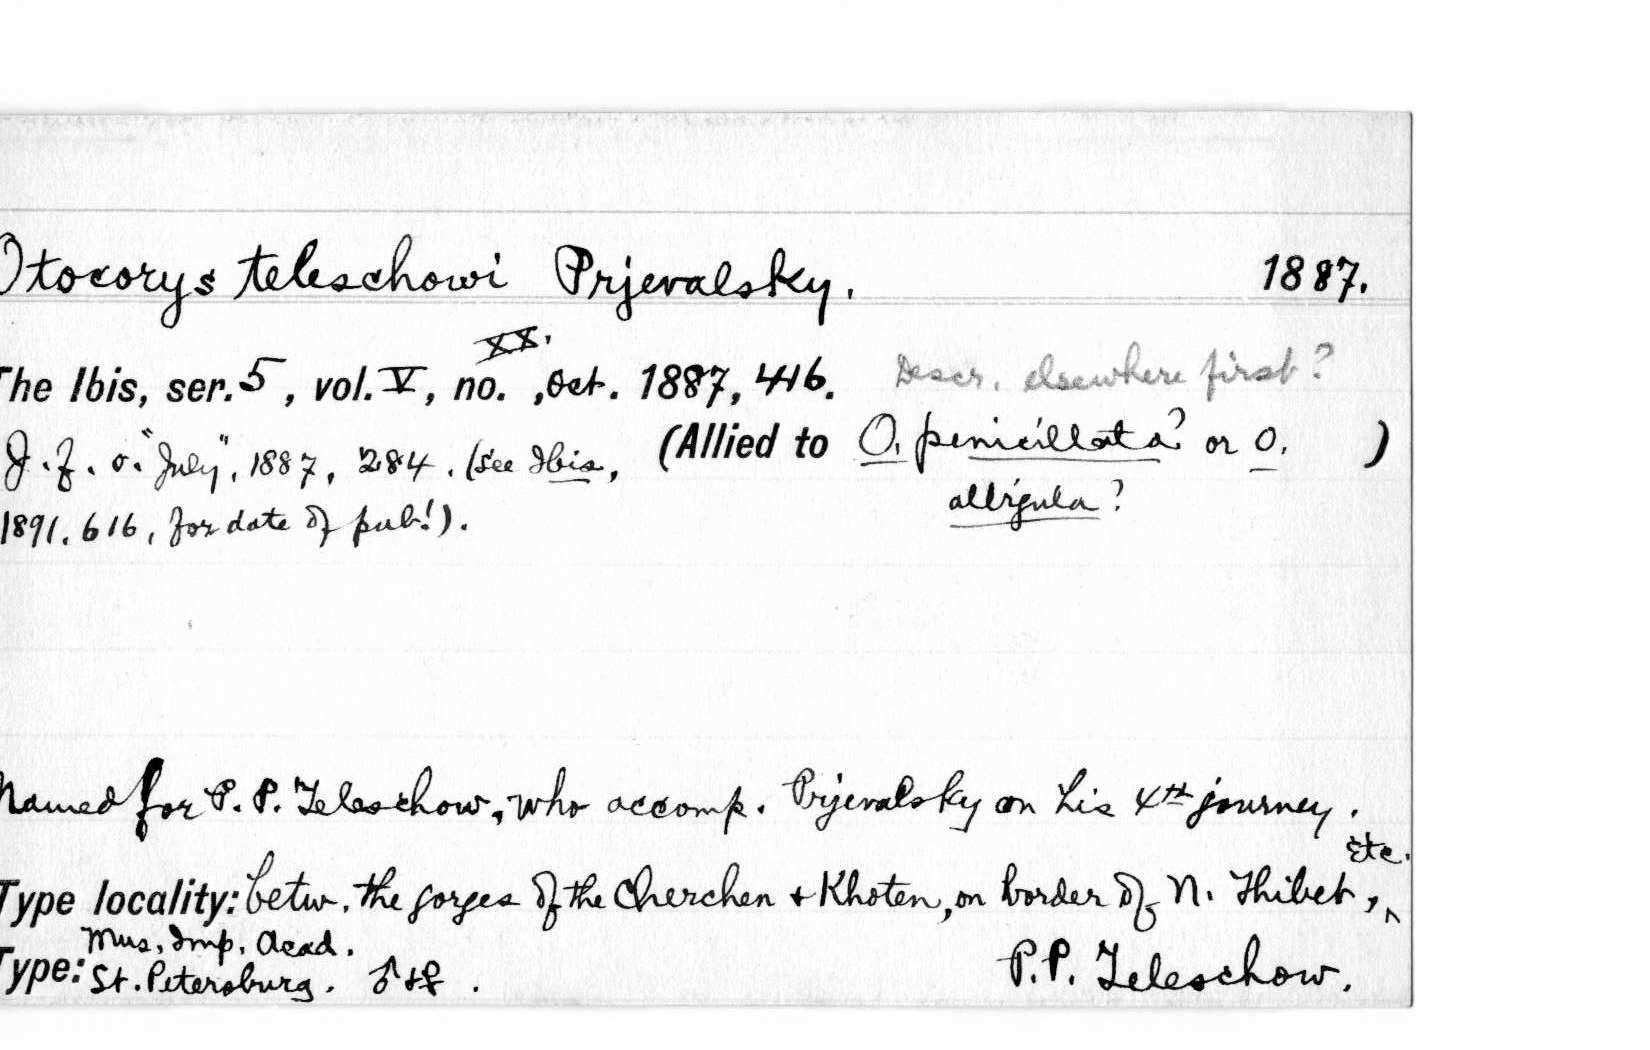 Otocorys teleschowi Prjevalsky. 1887.
XX.
The Ibis, ser. 5, vol. V, no. , Oct. 1887, 416. Descr. elsewhere first?
J. f. o. "July", 1887, 284. (See Ibis, (Allied to O. penicillata? or O. )
1891, 616, for date of pub!). albigula?
Named for P. P. Teleschow, who accomp. Prjevalsky on his 4th journey.
etc.
Type locality: betw. the gorges of the Cherchen + Khoten, on border of N. Thibet, ^
Mus. Imp. Acad.
Type: St. Petersburg. ♂ + ♀. P. P. Teleschow.